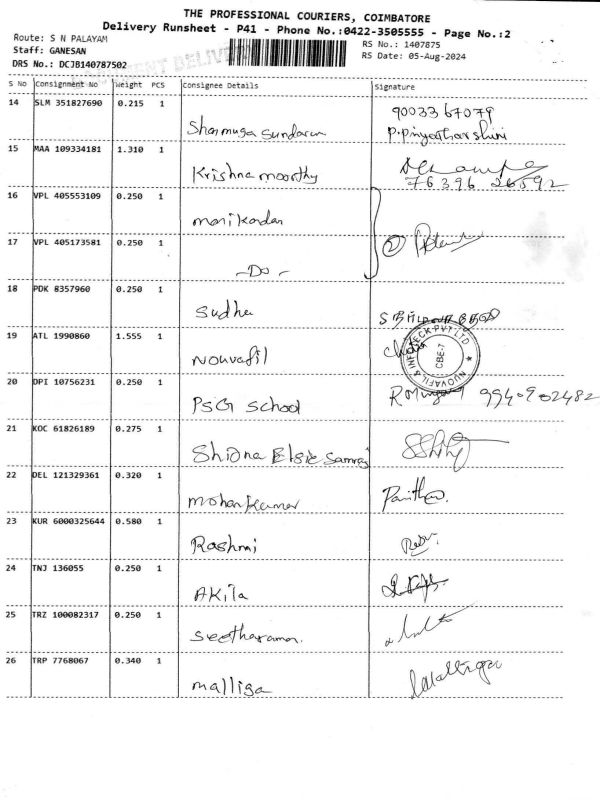 THE PROFESSIONAL COURIERS, COIMBATORE
Delivery Runsheet - P41 - Phone No.:0422-3505555 - Page No.:2
Route: S N PALAYAM
RS No.: 1407875
Staff: GANESAN
RS Date: 05-Aug-2024
DRS No.: DCJB140787502
S No Consignment No Weight PCS Consignee Details Signature
14 SLM 351827690 0.215 1
Shanmuga Sundaram 9003367079
P.Priyadharshini
15 MAA 109334181 1.310 1
Krishnamoorthy
76396 26592
16 VPL 405553109 0.250 1
manikandan
17 VPL 405173581 0.250 1
-Do- 2
18 PDK 8357960 0.250 1
Sudha
19 ATL 1990860 1.555 1
Nouvafil
NUOVAFIL & INFRATECK PVT LTD
CBE-7
20 DPI 10756231 0.250 1
PSG School 9940902482
21 KOC 61826189 0.275 1
Shidna Elsie Samraj
22 DEL 121329361 0.320 1
mohan kumar
23 KUR 6000325644 0.580 1
Rashmi
24 TNJ 136055 0.250 1
Akila
25 TRZ 100082317 0.250 1
Seetharaman.
26 TRP 7768067 0.340 1
malliga